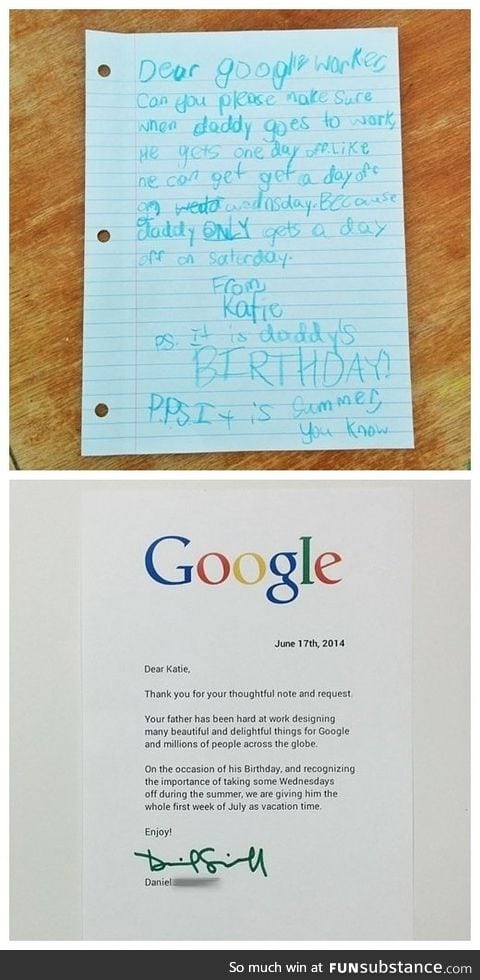 Dear google worker,
Can you please make sure
when daddy goes to work,
He gets one day off. Like
he can get get a day off
on wednsday. Because
daddy ONLY gets a day
off on saturday.
From,
Katie
ps. It is daddy's
BIRTHDAY!
P.P.S It is summer,
you know
Google
June 17th, 2014
Dear Katie,
Thank you for your thoughtful note and request.
Your father has been hard at work designing
many beautiful and delightful things for Google
and millions of people across the globe.
On the occasion of his Birthday, and recognizing
the importance of taking some Wednesdays
off during the summer, we are giving him the
whole first week of July as vacation time.
Enjoy!
Daniel
So much win at FUNsubstance.com